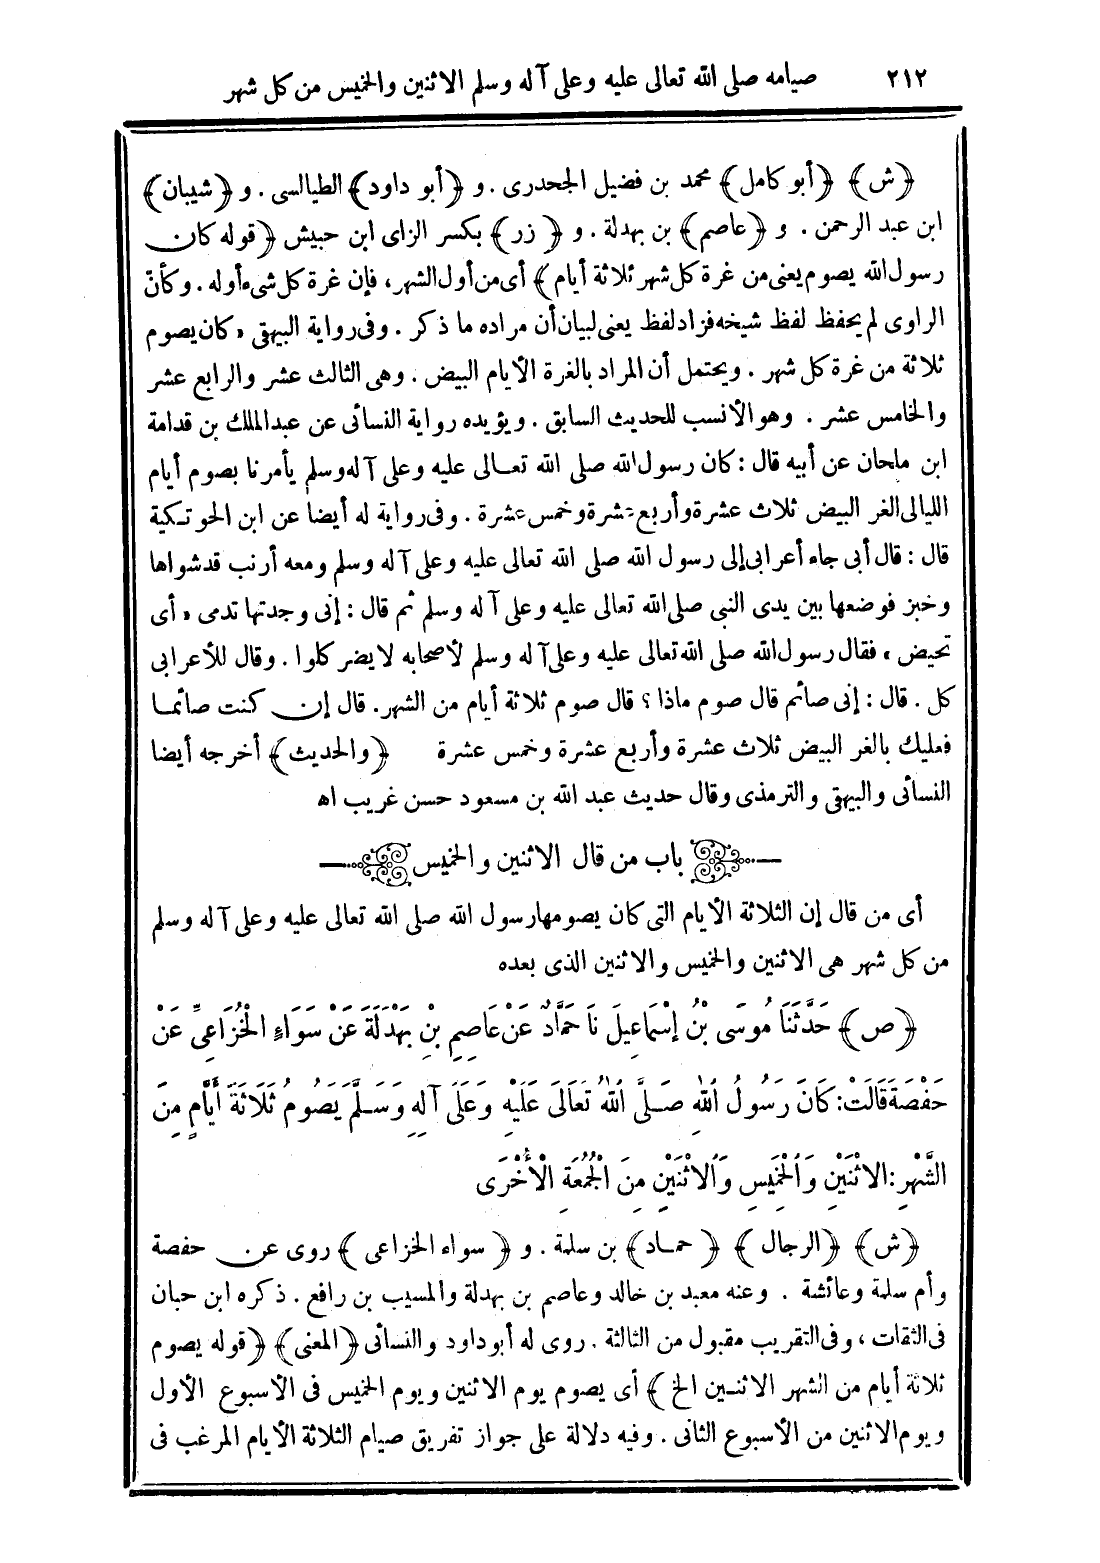 ٢١٢ صيامه صلى الله تعالى عليه وعلى آله وسلم الاثنين والخميس من كل شهر
(ش) (أبو كامل) محمد بن فضيل الجحدرى . و (أبو داود) الطيالسى . و (شيبان)
ابن عبد الرحمن . و (عاصم) بن بهدلة . و (زر) بكسر الزاى ابن حبيش (قوله كان
رسول الله يصوم يعنى من غرة كل شهر ثلاثة أيام) أى من أول الشهر، فإن غرة كل شىء أوله . وكأن
الراوى لم يحفظ لفظ شيخه فزاد لفظ يعنى لبيان أن مراده ما ذكر . وفى رواية البيهقى « كان يصوم
ثلاثة من غرة كل شهر . ويحتمل أن المراد بالغرة الأيام البيض . وهى الثالث عشر والرابع عشر
والخامس عشر . وهو الأنسب للحديث السابق . ويؤيده رواية النسائى عن عبد الملك بن قدامة
ابن ملحان عن أبيه قال : كان رسول الله صلى الله تعالى عليه وعلى آله وسلم يأمرنا بصوم أيام
الليالى الغر البيض ثلاث عشرة وأربع عشرة وخمس عشرة . وفى رواية له أيضا عن ابن الحوتكية
قال : قال أبى جاء أعرابى إلى رسول الله صلى الله تعالى عليه وعلى آله وسلم ومعه أرنب قد شواها
وخبز فوضعها بين يدى النبى صلى الله تعالى عليه وعلى آله وسلم ثم قال : إنى وجدتها تدمى « أى
تحيض » فقال رسول الله صلى الله تعالى عليه وعلى آله وسلم لأصحابه لا يضر كلوا . وقال للأعرابى
كل . قال : إنى صائم قال صوم ماذا ؟ قال صوم ثلاثة أيام من الشهر. قال إن كنت صائما
فعليك بالغر البيض ثلاث عشرة وأربع عشرة وخمس عشرة (والحديث) أخرجه أيضا
النسائى والبيهقى والترمذى وقال حديث عبد الله بن مسعود حسن غريب اه
باب من قال الاثنين والخميس
أى من قال إن الثلاثة الأيام التى كان يصومها رسول الله صلى الله تعالى عليه وعلى آله وسلم
من كل شهر هى الاثنين والخميس والاثنين الذى بعده
(ص) حَدَّثَنَا مُوسَى بْنُ إِسْمَاعِيلَ نَا حَمَّادٌ عَنْ عَاصِمِ بْنِ بَهْدَلَةَ عَنْ سَوَاءٍ الْخُزَاعِيِّ عَنْ
حَفْصَةَ قَالَتْ: كَانَ رَسُولُ اللهِ صَلَّى اللهُ تَعَالَى عَلَيْهِ وَعَلَى آلِهِ وَسَلَّمَ يَصُومُ ثَلَاثَةَ أَيَّامٍ مِنَ
الشَّهْرِ: الاثْنَيْنِ وَالْخَمِيسِ وَالاثْنَيْنِ مِنَ الْجُمُعَةِ الْأُخْرَى
(ش) (الرجال) (حماد) بن سلمة . و (سواء الخزاعى) روى عن حفصة
وأم سلمة وعائشة . وعنه معبد بن خالد وعاصم بن بهدلة والمسيب بن رافع . ذكره ابن حبان
فى الثقات ، وفى التقريب مقبول من الثالثة . روى له أبو داود والنسائى (المعنى) (قوله يصوم
ثلاثة أيام من الشهر الاثنين الخ) أى يصوم يوم الاثنين ويوم الخميس فى الأسبوع الأول
ويوم الاثنين من الأسبوع الثانى . وفيه دلالة على جواز تفريق صيام الثلاثة الأيام المرغب فى